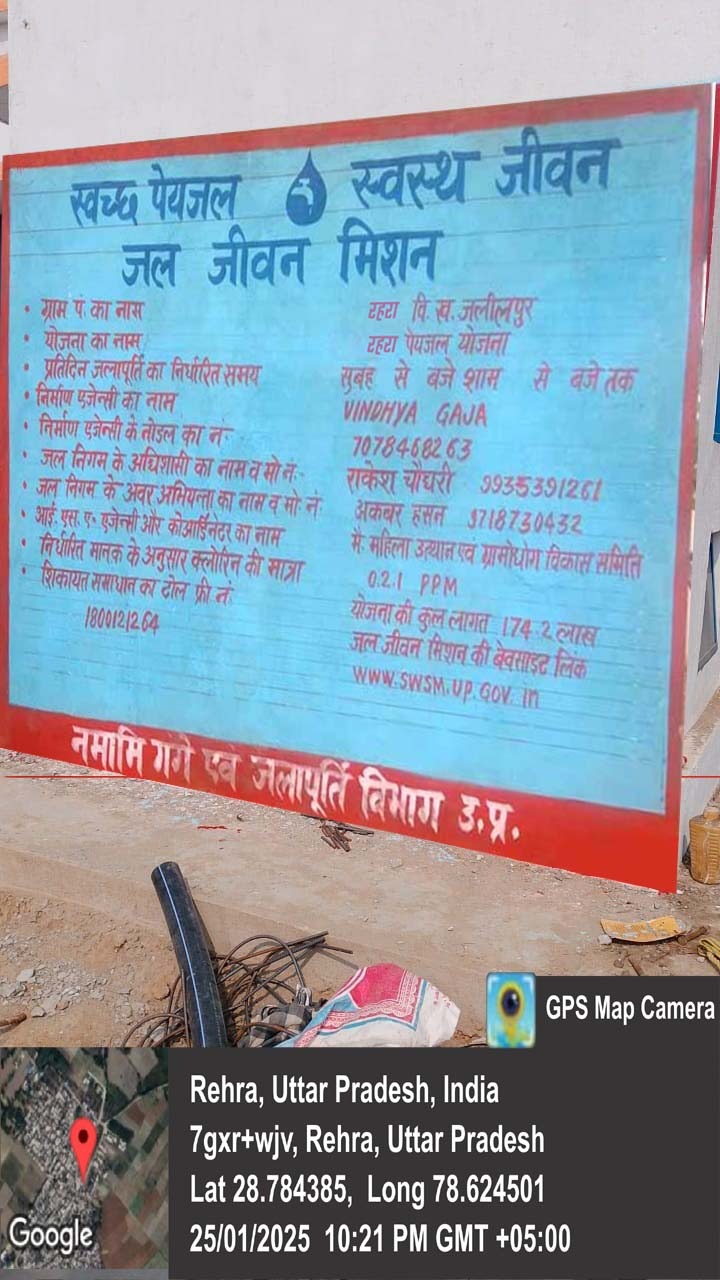 स्वच्छ पेयजल स्वस्थ जीवन
जल जीवन मिशन
• ग्राम पं. का नाम रहरा वि. ख. जलीलपुर
• योजना का नाम रहरा पेयजल योजना
• प्रतिदिन जलापूर्ति का निर्धारित समय सुबह से बजे शाम से बजे तक
• निर्माण एजेन्सी का नाम VINDHYA GAJA
• निर्माण एजेन्सी के नोडल का नं- 7078468263
• जल निगम के अधिशासी का नाम व मो नं- राकेश चौधरी 9935391261
• जल निगम के अवर अभियन्ता का नाम व मो नं अकबर हसन 9718730432
• आई. एस. ए- एजेन्सी और कोआर्डिनेटर का नाम मे- महिला उत्थान एवं ग्रामोधोग विकास समिति
• निर्धारित मानक के अनुसार क्लोरिन की मात्रा 0.2.1 PPM
• शिकायत समाधान का टोल फ्री नं- योजना की कुल लागत 174.2 लाख
1800121264 जल जीवन मिशन की बेवसाइट लिंक
www.swsm.up.Gov.in
नमामि गंगे एवं जलापूर्ति विभाग उ.प्र.
GPS Map Camera
Rehra, Uttar Pradesh, India
7gxr+wjv, Rehra, Uttar Pradesh
Lat 28.784385, Long 78.624501
25/01/2025 10:21 PM GMT +05:00
Google